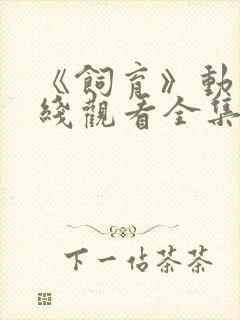 《飼育》動
綫觀看全集
下一佔茶茶